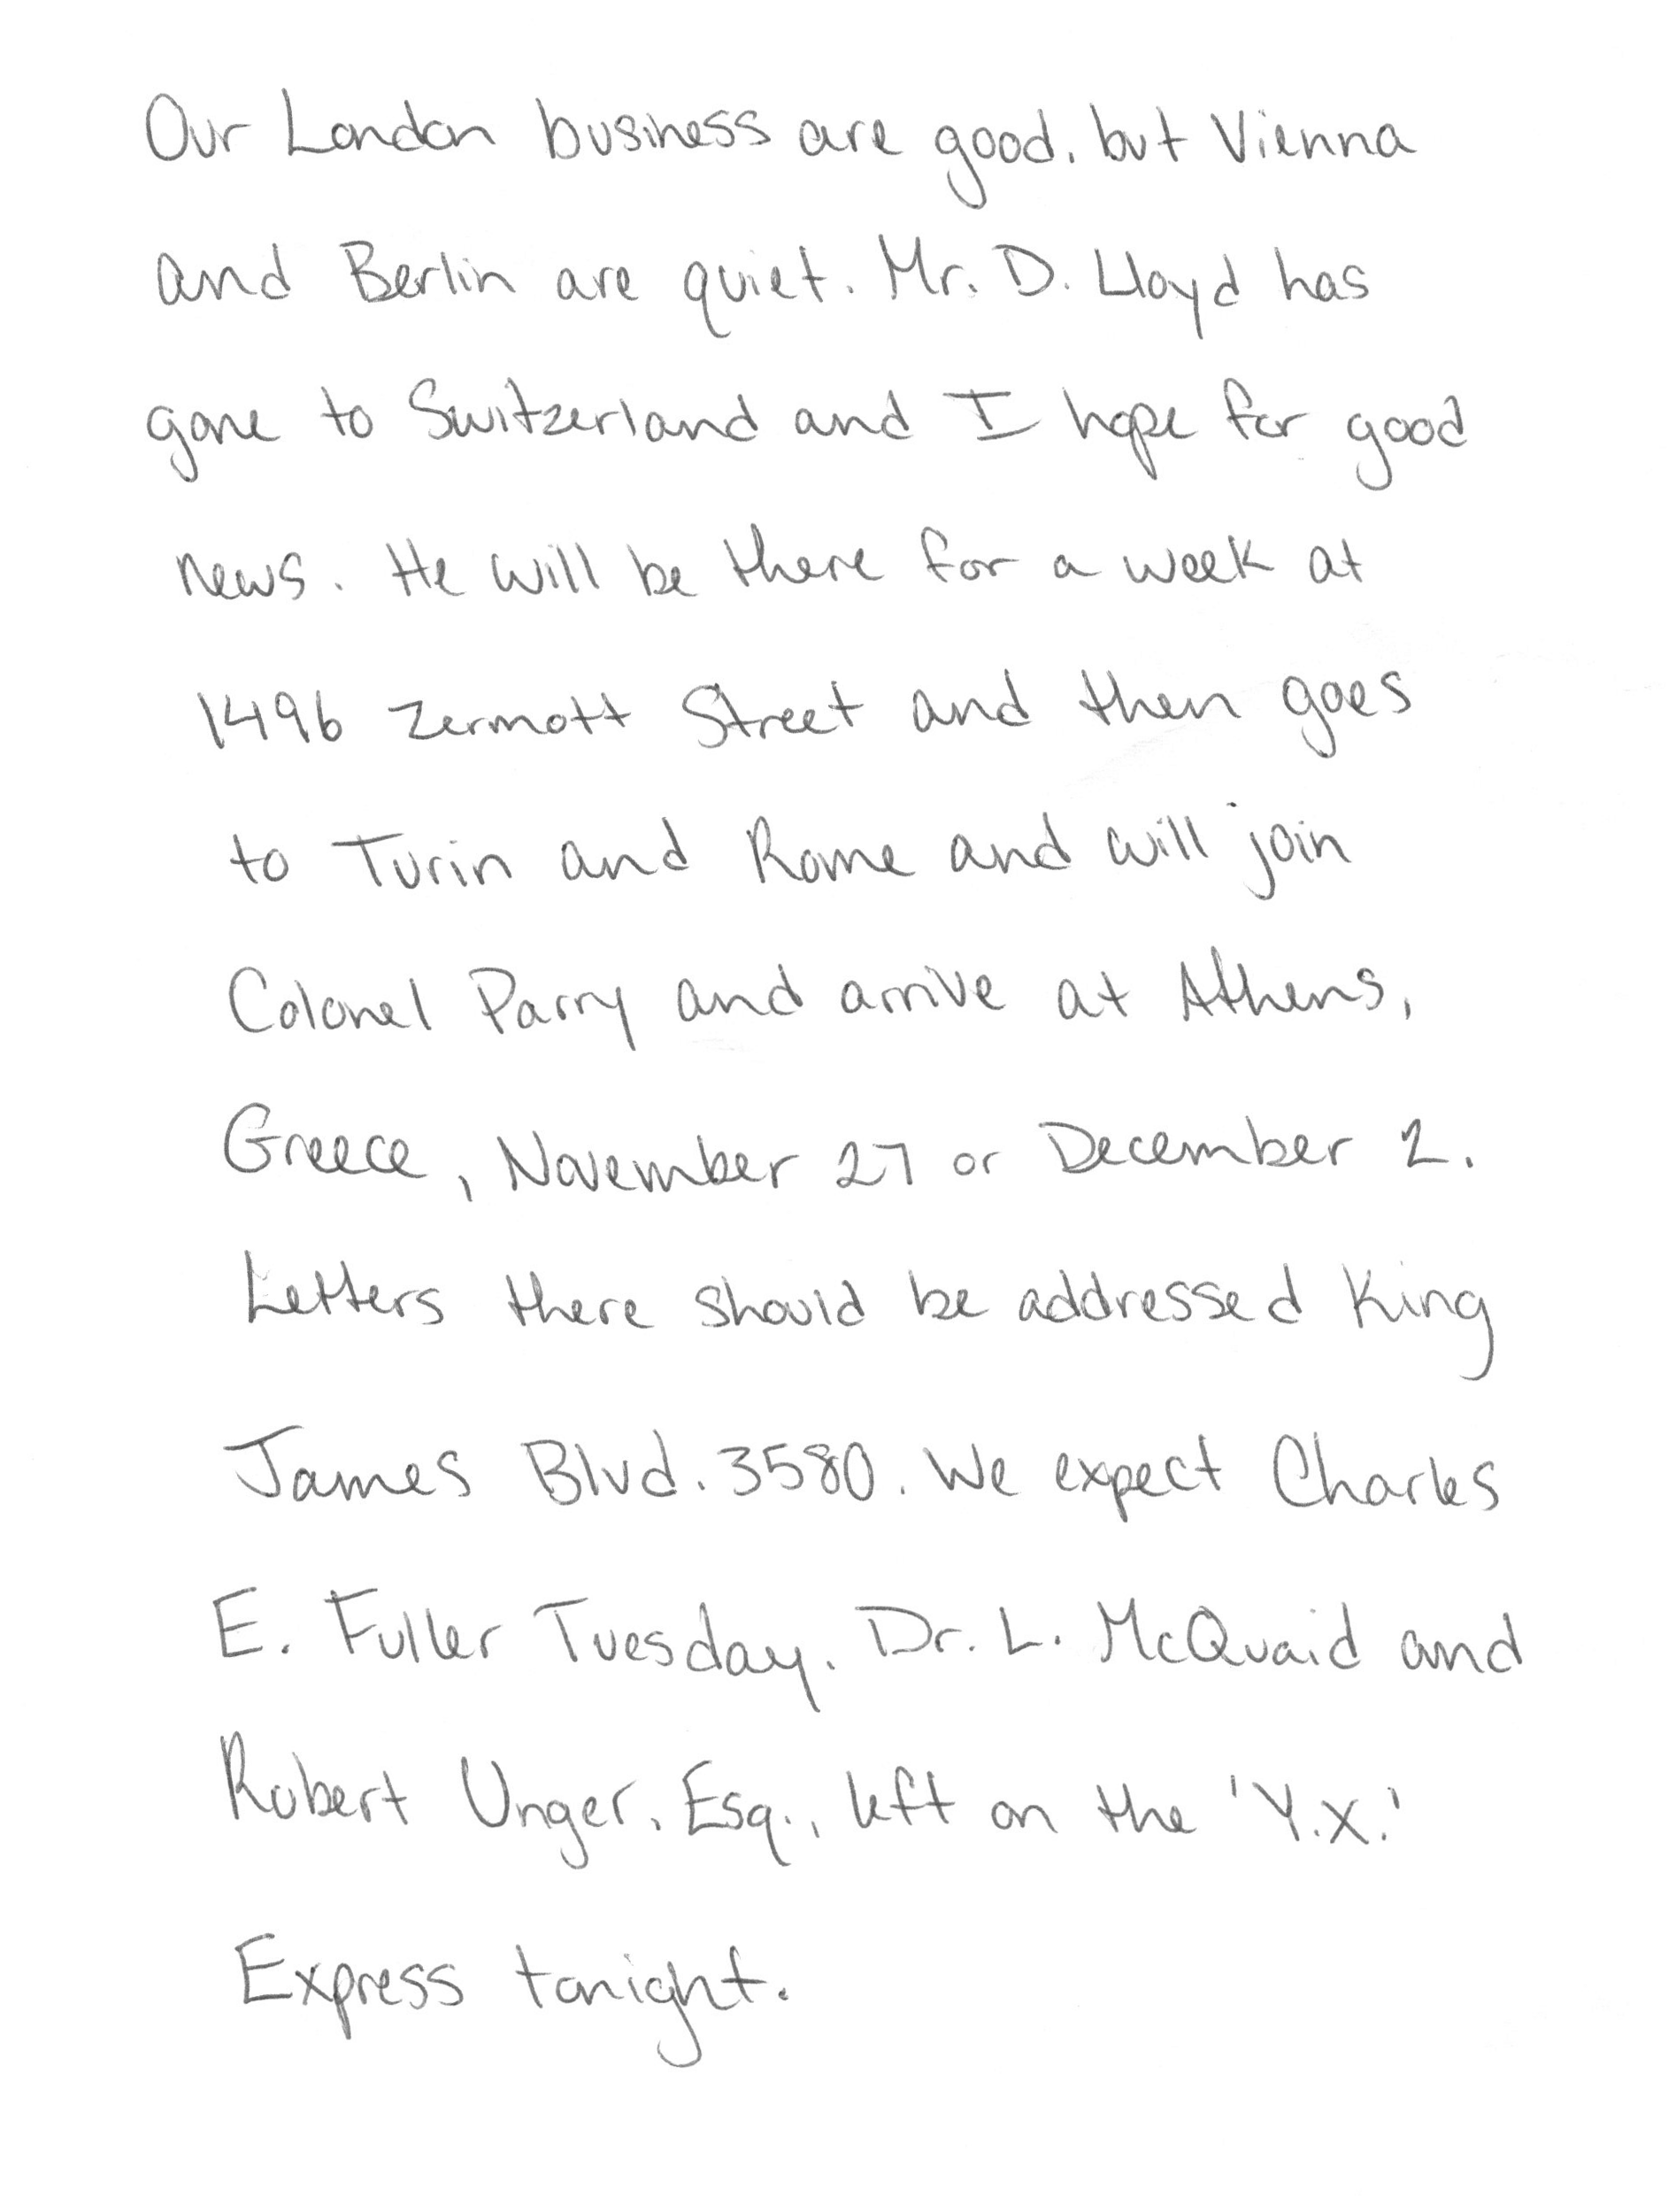 Our London business are good. but Vienna
and Berlin are quiet. Mr. D. Lloyd has
gone to Switzerland and I hope for good
news. He will be there for a week at
1496 Zermott Street and then goes
to Turin and Rome and will join
Colonel Parry and arrive at Athens,
Greece, November 27 or December 2.
Letters there should be addressed King
James Blvd. 3580. We expect Charles
E. Fuller Tuesday. Dr. L. McQuaid and
Robert Unger, Esq., left on the 'Y.X.'
Express tonight.